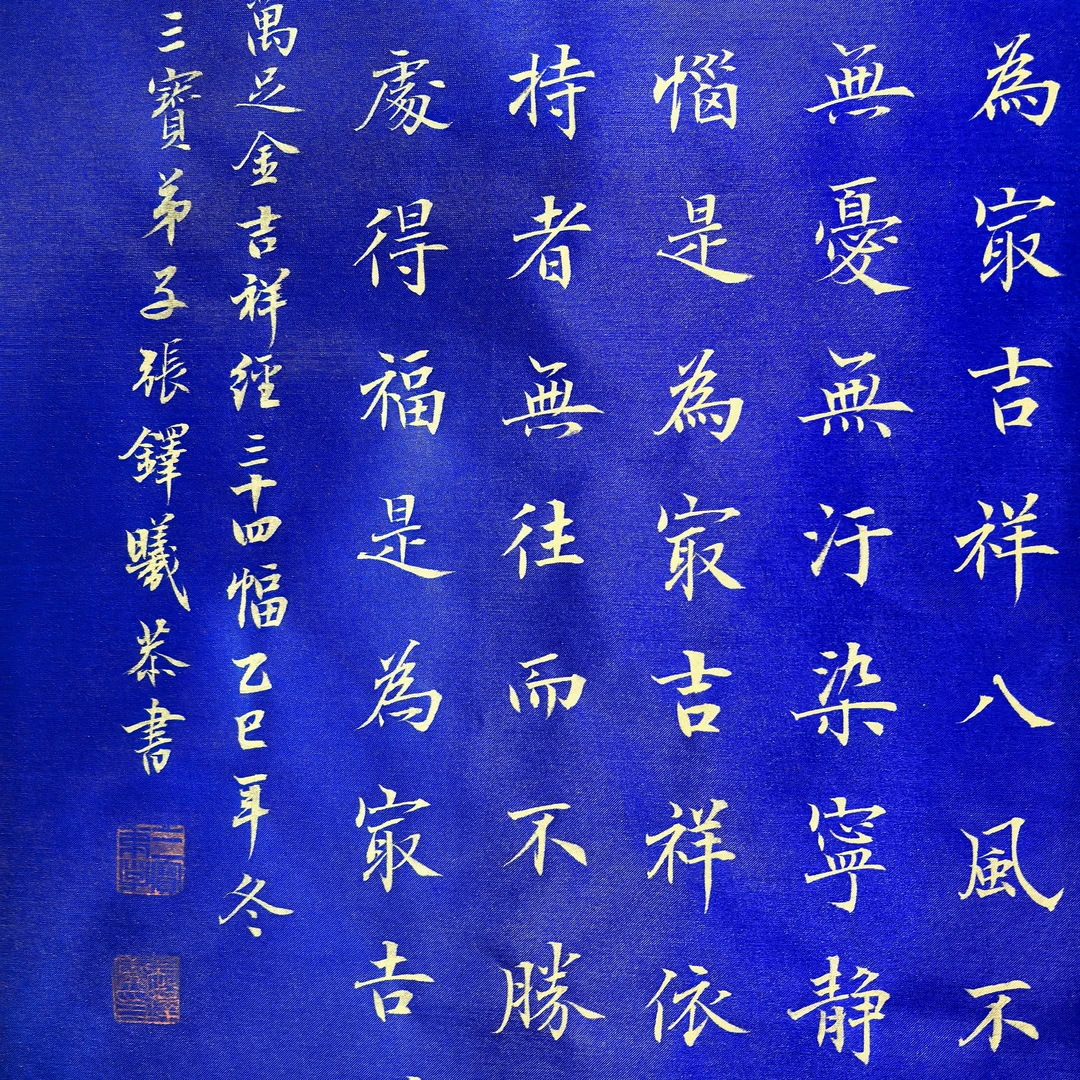 為最吉祥八風不
無憂無汙染寧静
惱是為最吉祥依
持者無往而不勝
處得福是為最吉
萬足金吉祥經三十四幅乙巳年冬
三寶弟子張鐸曦恭書